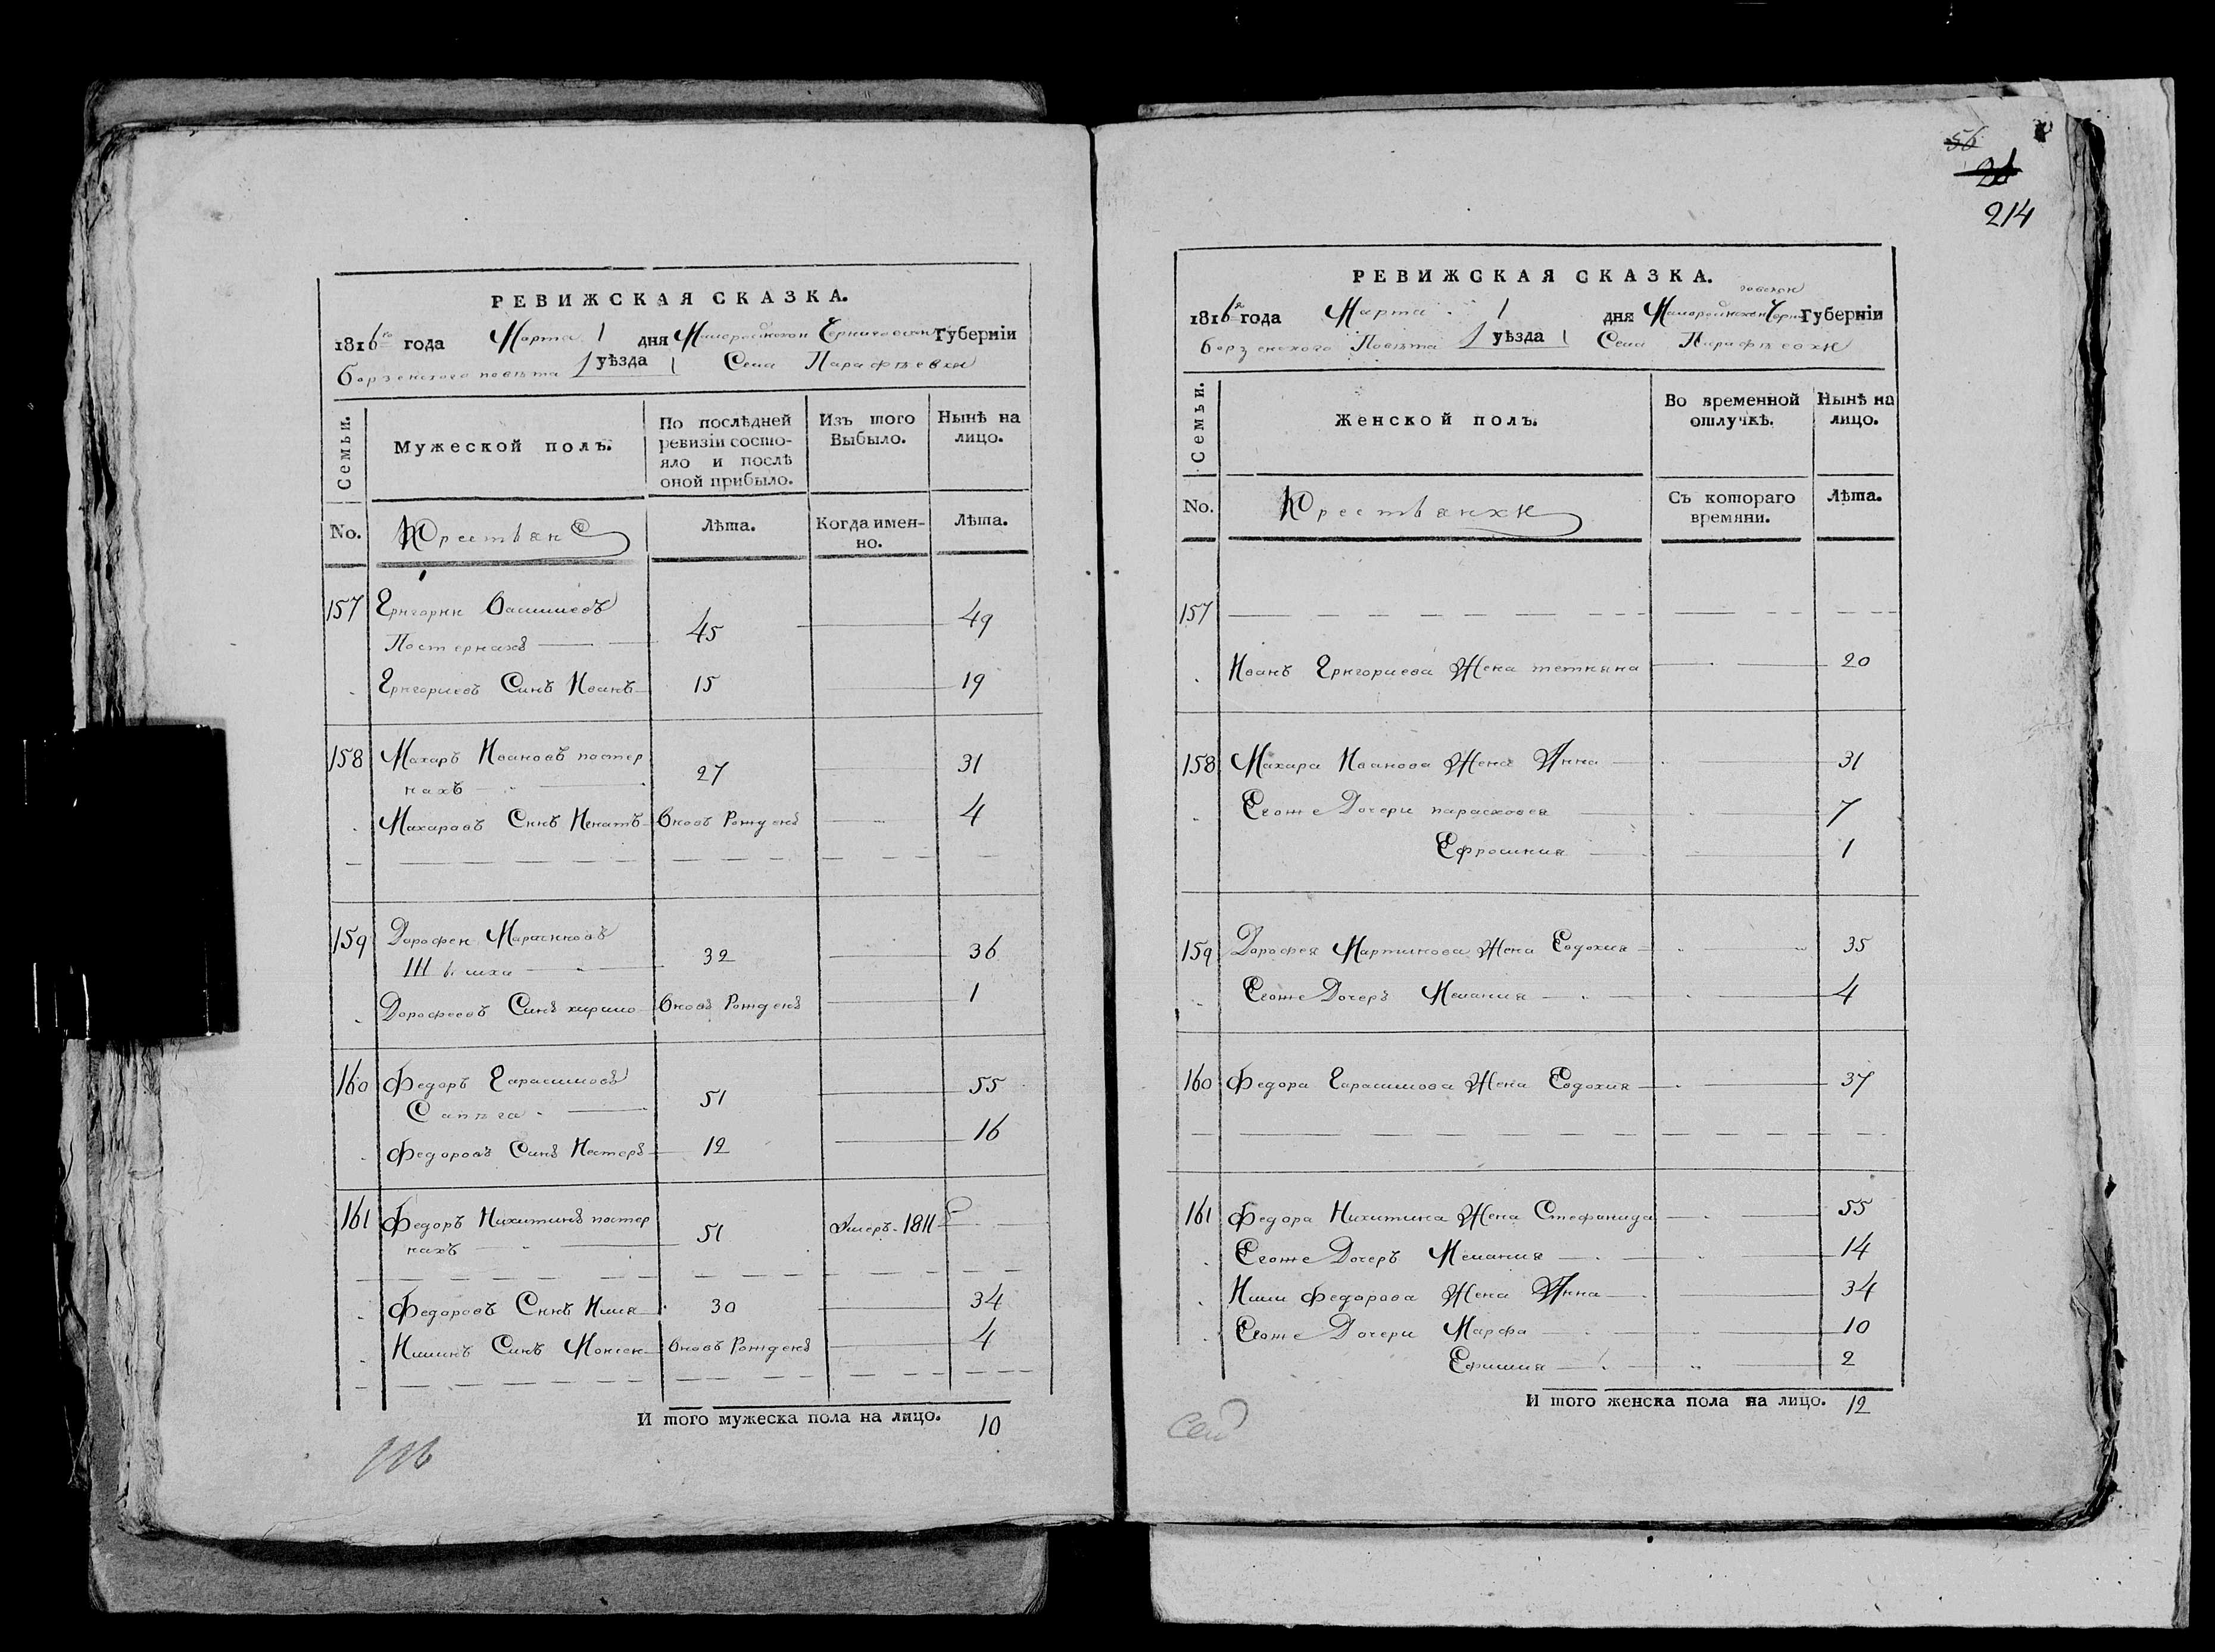 РЕВИЖСКАЯ СКАЗКА.
1816го года Марта 1 дня Малороссійской Черниговской Губерніи
борзенского повѣта уѣзда Села Парафѣевки
Семьи.
Мужеской полъ.
По послѣдней ревизіи состо-
яло и послѣ
оной прибыло.
Изъ того
Выбыло.
Нынѣ на
лицо.
No.
Крестьяне
Лѣта.
Когда имен-
но.
Лѣта.
157 Григорий Васильевъ
Постернакъ 45 49
Григориевъ Синъ Иванъ 15 19
158 Макаръ Ивановъ постер
накъ 27 31
Макаровъ Синъ Игнатъ Вновь Рожденъ 4
159 Дорофей
36
32
Дорофеевъ Синъ Вновь Рожденъ 1
160 Федоръ Гарасимовъ
Сапѣга 51 55
Федоровъ Синъ Нестеръ 12 16
161 Федоръ Никитинъ постер
накъ 51 Умеръ 1811
Федоровъ Синъ Илия 30 34
Илиинъ Синъ Моисей Вновь Рожденъ 4
И того мужеска пола на лицо. 10
56
21
214
РЕВИЖСКАЯ СКАЗКА.
1816го года Марта 1 дня Малороссійской Черниговской Губерніи
борзенского Повѣта уѣзда Села Парафѣевки
Семьи.
Женской полъ.
Во временной
отлучкѣ.
Нынѣ на
лицо.
No.
Крестьянки
Съ котораго
времяни.
Лѣта.
157
Иванъ Григориева Жена тетияна 20
158 Макара Иванова Жена Анна 31
Егоже Дочери парасковея 7
Ефросиния 1
159 Дорофея Мартинова Жена Евдокия 35
Егоже Дочеръ Мелания 4
160 Федора Гарасимова Жена Евдокия 37
161 Федора Никитина Жена Стефанида 55
Егоже Дочеръ Мелания 14
Илии Федорова Жена Анна 34
Егоже Дочери Марфа 10
Ефимия 2
И того женска пола на лицо. 12